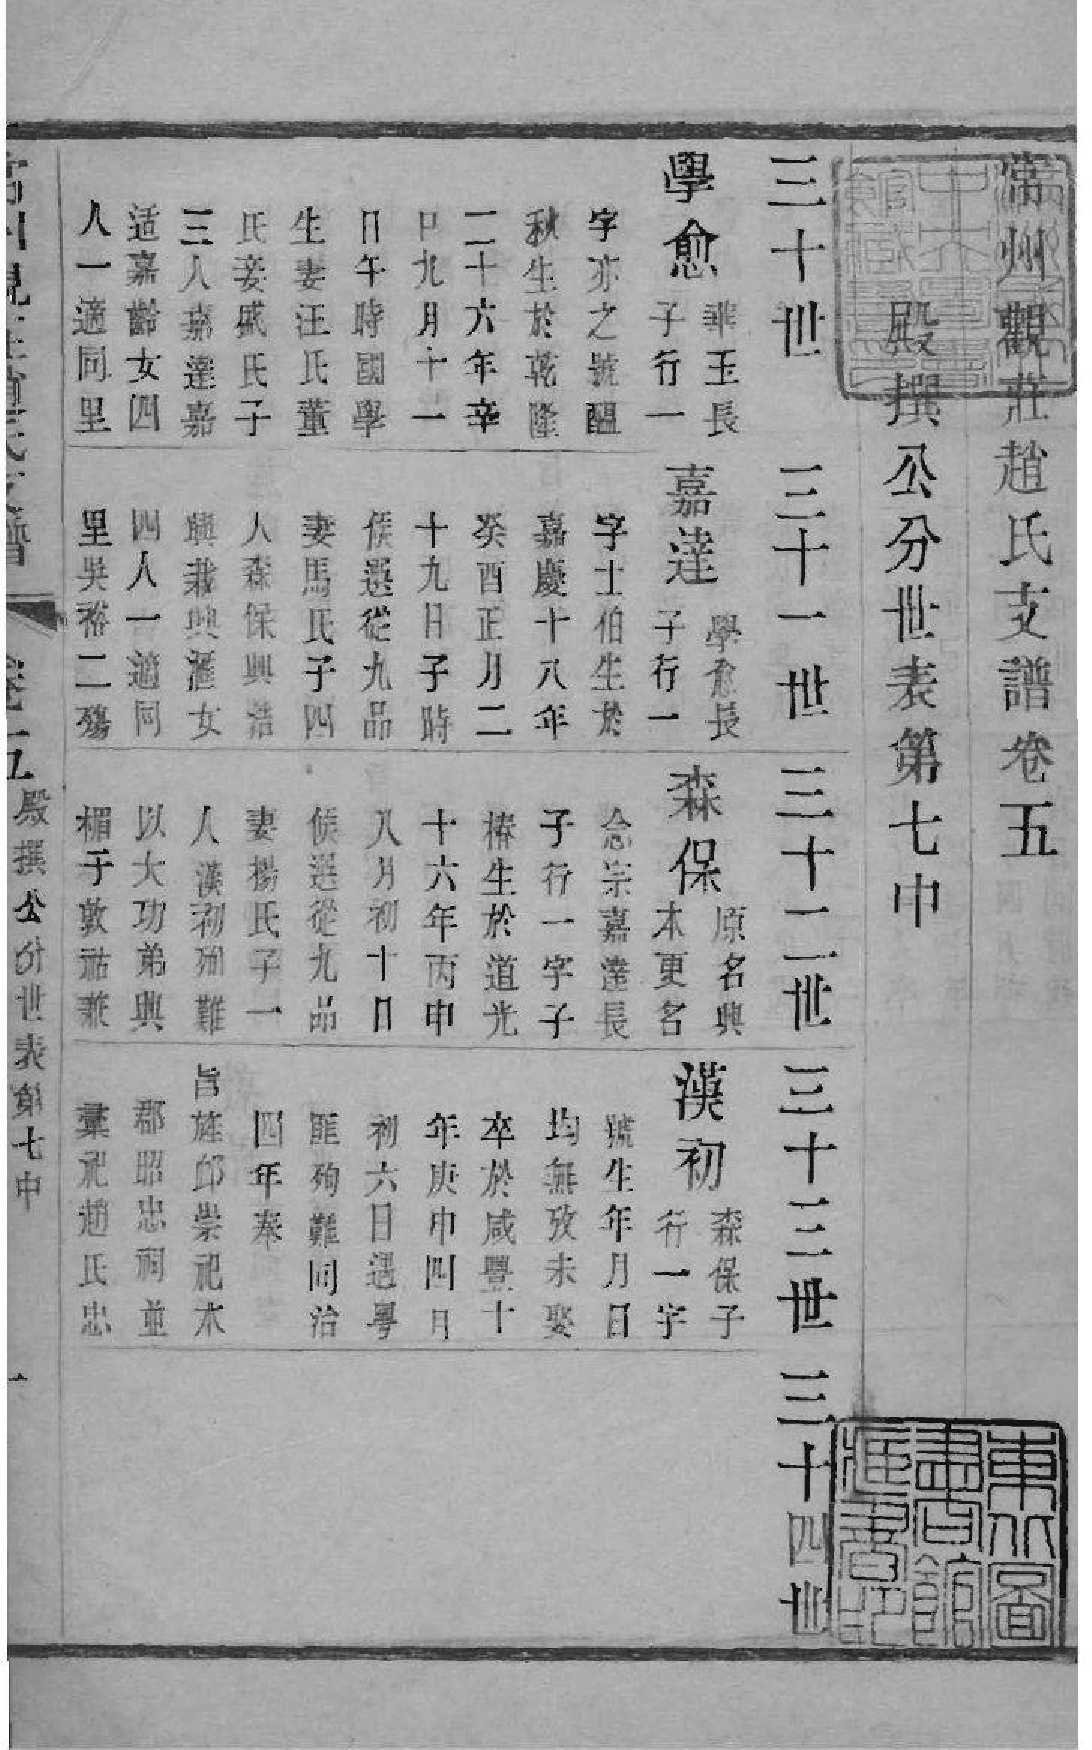 常州觀莊趙氏支譜卷五
殿撰公分世表第七中
三十世
三十一世
三十二世
三十三世
三十四世
學愈
華玉長
子行一
字亦之號醞
秋生於乾隆
二十六年辛
巳九月十一
日午時國學
生妻汪氏董
氏妾戚氏子
三人嘉達嘉
适嘉齡女四
人一適同里
嘉達
學愈長
子行一
字士伯生於
嘉慶十八年
癸酉正月二
十九日子時
候選從九品
妻馬氏子四
人森保興浩
興栽興滙女
四人一適同
里吳裕二殤
森保
原名興
本更名
念宗嘉達長
子行一字子
椿生於道光
十六年丙申
八月初十日
候選從九品
妻楊氏子一
人漢初殉難
以大功弟興
楣子敦祜兼
漢初
森保子
行一字
號生年月日
均無攷未娶
卒於咸豐十
年庚申四月
初六日遇粵
匪殉難同治
四年奉
旨旌卹崇祀本
郡昭忠祠並
彙祀趙氏忠
常州觀莊趙氏支譜
卷五
殿撰公分世表第七中
一
東北圖
書館
藏書印